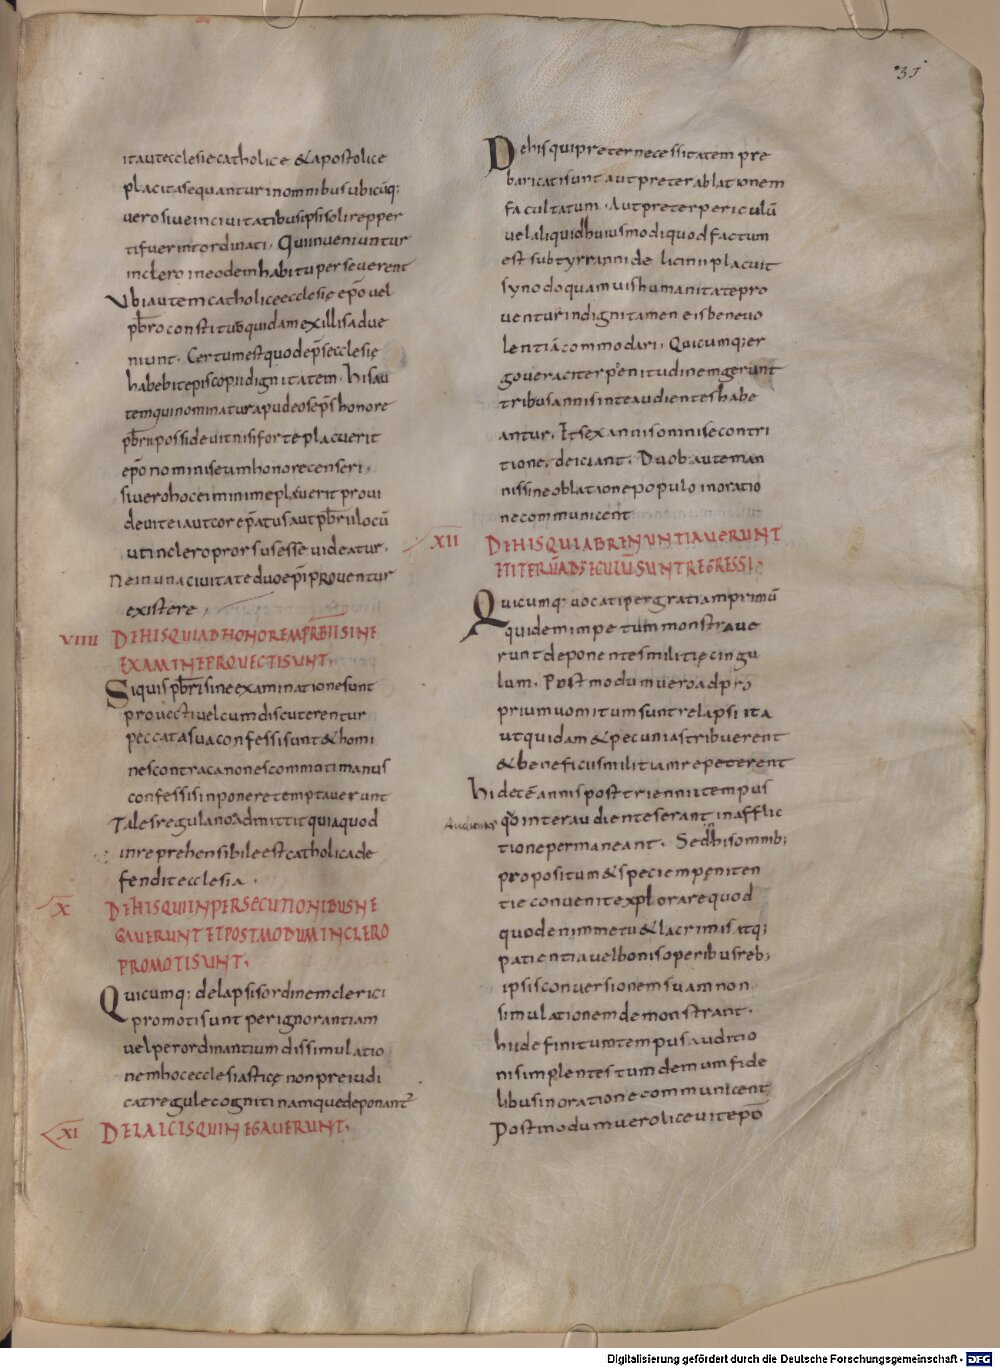 31
ita ut ecclesie catholice & apostolice
placita sequantur in omnibus ubicūq;
vero sive in civitatibus ipsi soli repper
ti fuerint ordinati. Qui inveniuntur
in clero in eodem habitu perseverent
Ubi autem catholice ecclesię ep̄o vel
pb̄ro constituto quidam ex illis adve
niunt. Certum est quod ep̄s ecclesię
habebit episcopii dignitatem. his au
tem qui nominatur apud eos ep̄s honore
pb̄rii possidevit nisi forte placuerit
ep̄o nominis eum honore censeri.
si vero hoc ei minime placuerit provi
devit ei aut corep̄atus aut pb̄rii locū
ut in clero prorsus esse videatur.
ne in una civitate duo ep̄i proventur
existere.
VIIII DE HIS QUI AD HONOREM PRB̄II SINE
EXAMINE PROVECTI SUNT.
Siquis pb̄ri sine examinatione sunt
provecti vel cum discuterentur
peccata sua confessi sunt & homi
nes contra canones commoti manus
confessis inponere temptaverunt
Tales regula non admittit quia quod
inreprehensibile est catholica de
fendit ecclesia.
X DE HIS QUI IN PERSECUTIONIBUS NE
GAVERUNT ET POSTMODUM IN CLERO
PROMOTI SUNT.
Quicumq; de lapsis ordinem clerici
promoti sunt per ignorantiam
vel per ordinantium dissimulatio
nem hoc ecclesiasticę non preiudi
cat regule cogniti namque deponant~
XI DE LAICIS QUI NEGAVERUNT.
De his qui preter necessitatem pre
baricati sunt aut preter ablationem
facultatum. Aut preter periculū
vel aliquid huiusmodi quod factum
est sub tyrrannide licinii placuit
synodo quamvis humanitate pro
ventur indigni tamen eis benevo
lentiā commodari. Quicumq; er
go veraciter penitudinem gerunt
tribus annis inte audientes habe
antur. Et sex annis omni se contri
tione deiciant. Duob; autem an
nis sine oblatione populo in oratio
ne communicent
XII DE HIS QUI ABRENUNTIAVERUNT
ET ITERŪ AD SECULŪ SUNT REGRESSI.
Quicumq; vocati per gratiam primū
quidem impetum monstrave
runt deponentes militię cingu
lum. Postmodum vero ad pro
prium vomitum sunt relapsi ita
ut quidam & pecunias tribuerent
& beneficiis militiam repeterent
hi decē annis post triennii tempus
quo inter audientes erant in afflic
tione permaneant. Sed in his omnib;
propositum & speciem peniten
tie convenit explorare quod
quod enim metu & lacrimis atq;
patientia vel bonis operibus reb;
ipsis conversionem suam non
simulationem demonstrant.
hii definitum tempus auditio
nis implentes tum demum fide
libus in oratione communicent
Postmodum vero licevit ep̄o
Digitalisierung gefördert durch die Deutsche Forschungsgemeinschaft - DFG